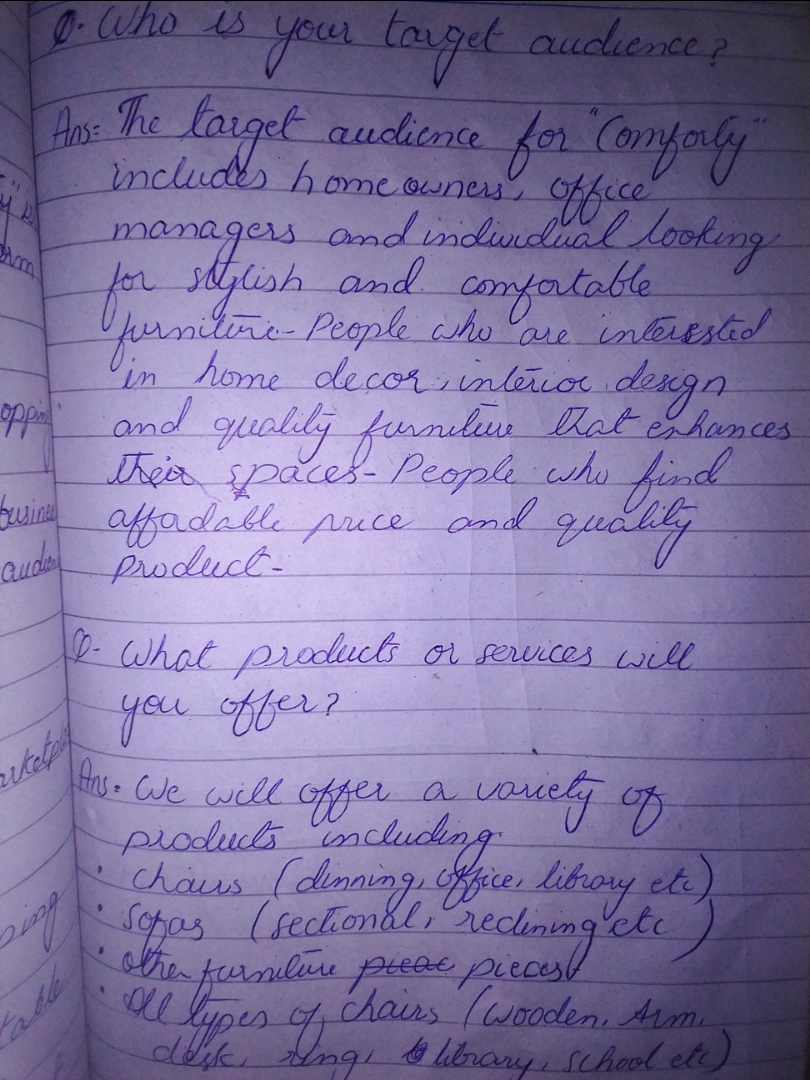 Q. Who is your target audience?
Ans= The target audience for "Comforty"
includes homeowners, office
managers and individual looking
for stylish and comfortable
furniture - People who are interested
in home decor, interior design
and quality furniture that enhances
their spaces - People who find
affadable price and quality
product -
Q- What products or services will
you offer?
Ans. We will offer a variety of
products including
• Chairs (dinning, office, library etc)
• Sofas (sectional, reclining etc)
• Other furniture pieces
• All types of chairs (wooden, Arm,
desk, ring, library, school etc)
opping
busines
audien
arketpla
ping
table